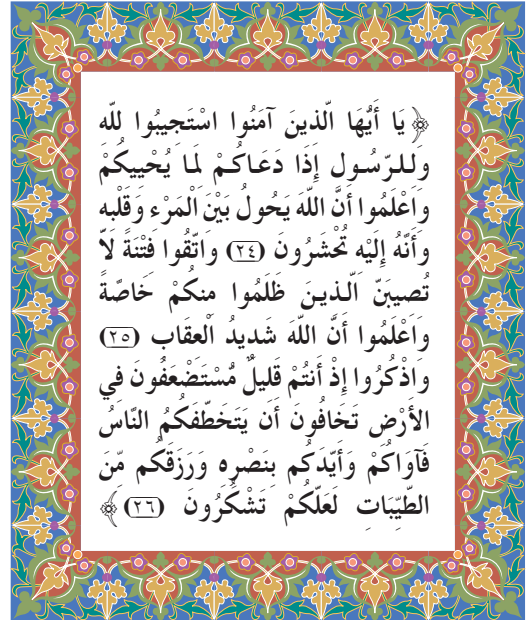 ﴿ يَا أَيُّهَا الَّذينَ آمَنُوا اسْتَجيبُوا للّه
وللـرّسُـول إذَا دَعَـاكُـمْ لمَا يُحْييكُمْ
وَاعْلَمُوا أنَّ اللّهَ يَحُولُ بَيْنَ الْمَرْء وَقَلْبه
وَأنَّهُ إلَيْه تُحْشَرُونَ (٢٤) واتّقُوا فتْنَةً لاّ
تُصيبَنّ الَّـذيـنَ ظَلَمُوا منكُمْ خَاصّةً
وَاعْلَمُوا أنَّ اللّهَ شَديدُ الْعقَاب (٢٥)
وَاذْكُرُوا إذْ أَنتُمْ قَليلٌ مُّسْتَضْعَفُونَ في
الأَرْض تَخَافُونَ أَن يَتَخَطّفَكُمُ النّاسُ
فَآوَاكُمْ وَأَيّدَكُم بِنَصْره وَرَزَقَكُم مِّنَ
الطَّيّبَاتِ لَعَلّكُمْ تَشْكُرُونَ (٢٦) ﴾